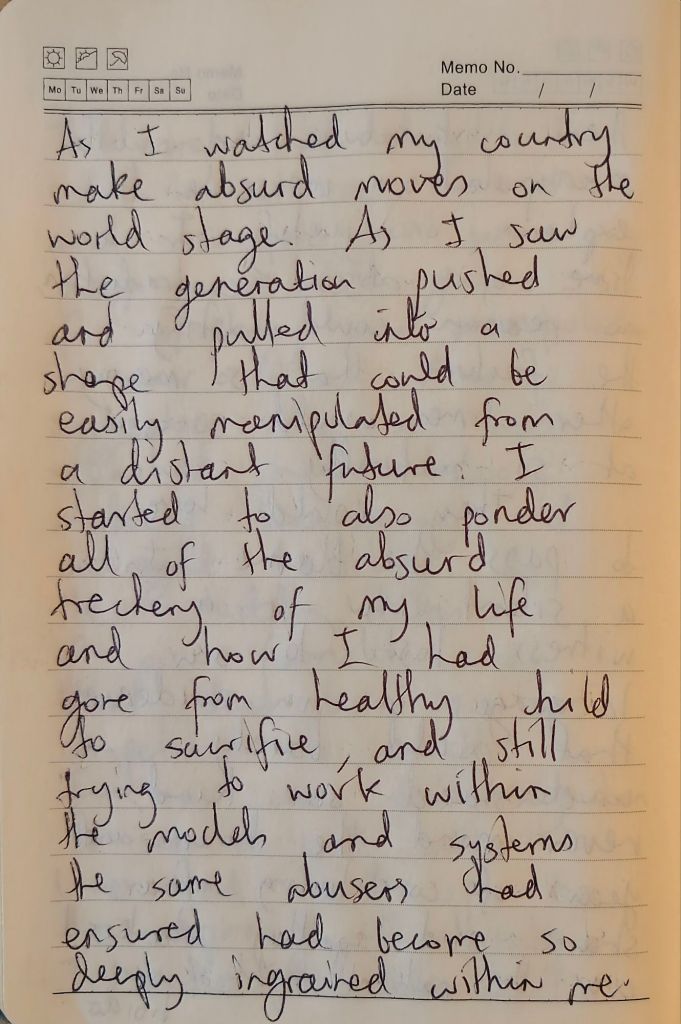 Memo No.
Mo Tu We Th Fr Sa Su
Date / /
As I watched my country
make absurd moves on the
world stage. As I saw
the generation pushed
and pulled into a
shape that could be
easily manipulated from
a distant future. I
started to also ponder
all of the absurd
trechery of my life
and how I had
gone from healthy child
to sacrifice, and still
trying to work within
the models and systems
the same abusers had
ensured had become so
deeply ingrained within me.